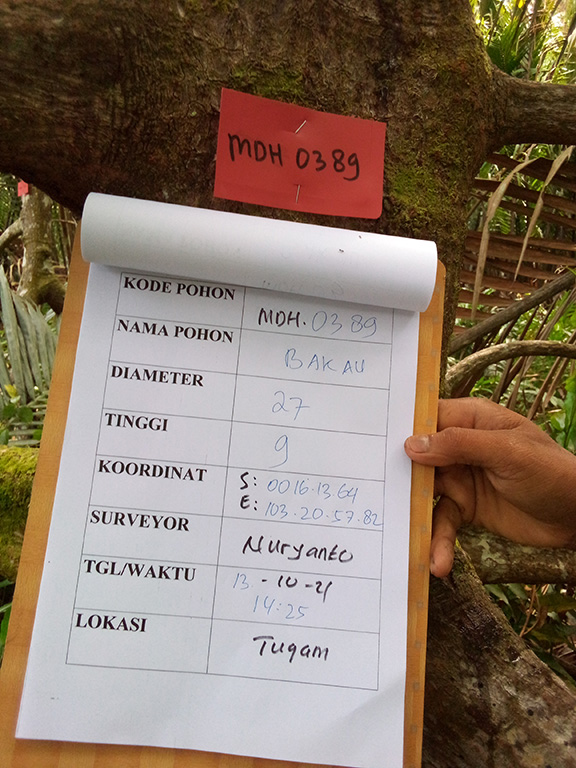 MDH 0389
KODE POHON MDH. 0389
NAMA POHON BAKAU
DIAMETER 27
TINGGI 9
KOORDINAT S: 0016.13.64
E: 103.20.57.82
SURVEYOR Nuryanto
TGL/WAKTU 13 - 10 - 21
14:25
LOKASI Tugam